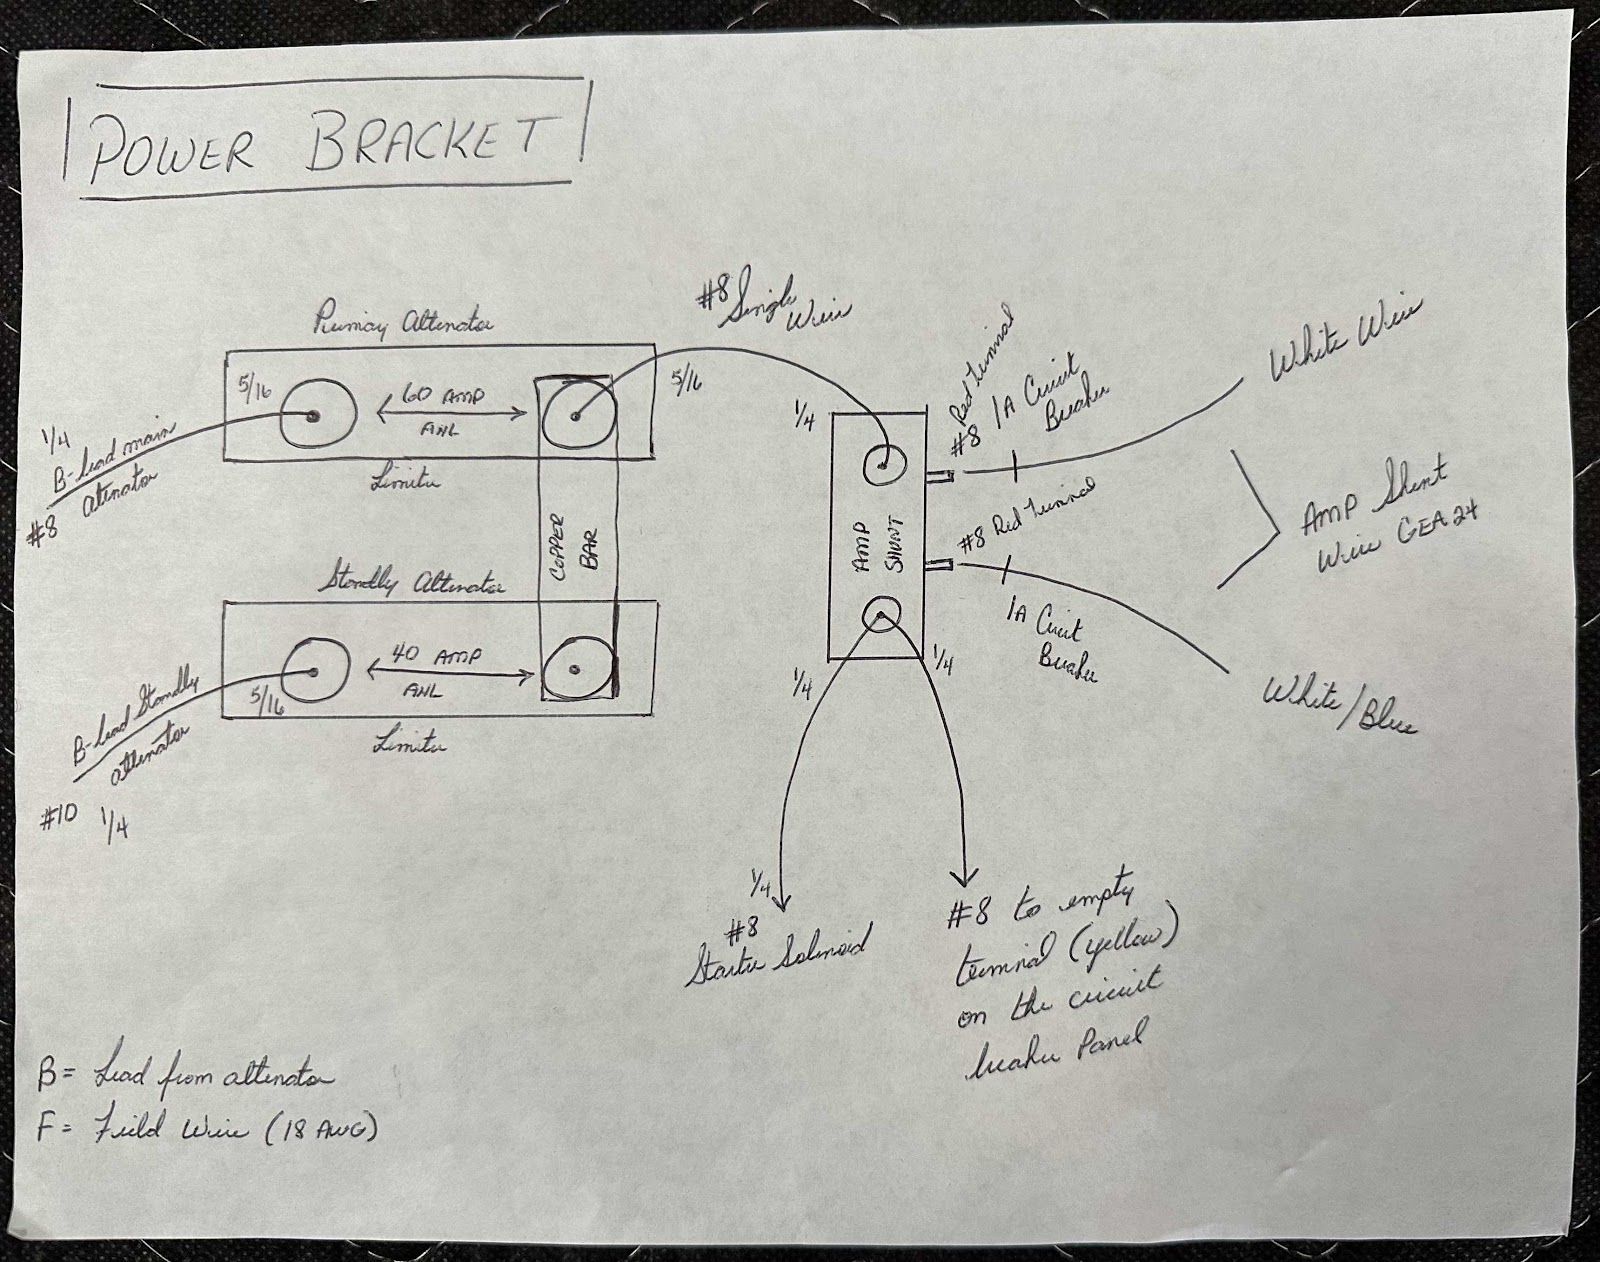 POWER BRACKET
#8 Single
Wire
Primay Altenator
5/16
60 AMP
ANL
5/16
1/4
B-lead main
Altenator
#8
Limiter
COPPER
BAR
Standby Altenator
5/16
40 AMP
ANL
Limiter
B-lead Standby
Altenator
#10 1/4
1/4
AMP
SHUNT
Red Terminal
#8 1A Circuit
Breaker
White Wire
#8 Red Terminal
1A Circuit
Breaker
White/Blue
AMP Shunt
Wire GEA24
1/4
1/4
1/4
#8
Starter Solenoid
#8 to empty
terminal (yellow)
on the circuit
breaker Panel
B= Lead from altenator
F= Field Wire (18 AWG)